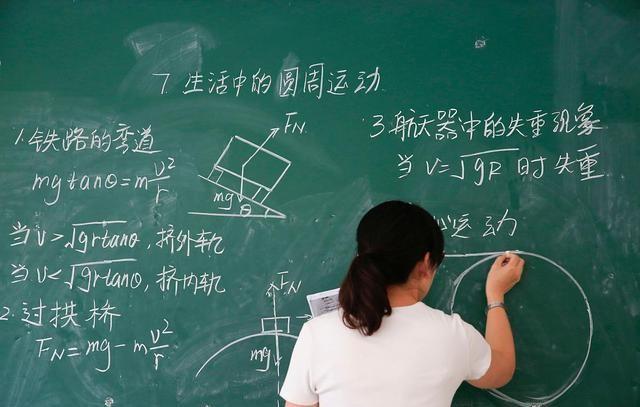 7. 生活中的圆周运动
1. 铁路的弯道
mgtanθ=m v²/r
当 v>√grtanθ, 挤外轨
当 v<√grtanθ, 挤内轨
2. 过拱桥
F_N=mg-m v²/r
F_N
mg
θ
F_N
mg
3. 航天器中的失重现象
当 v=√gR 时失重
心运动